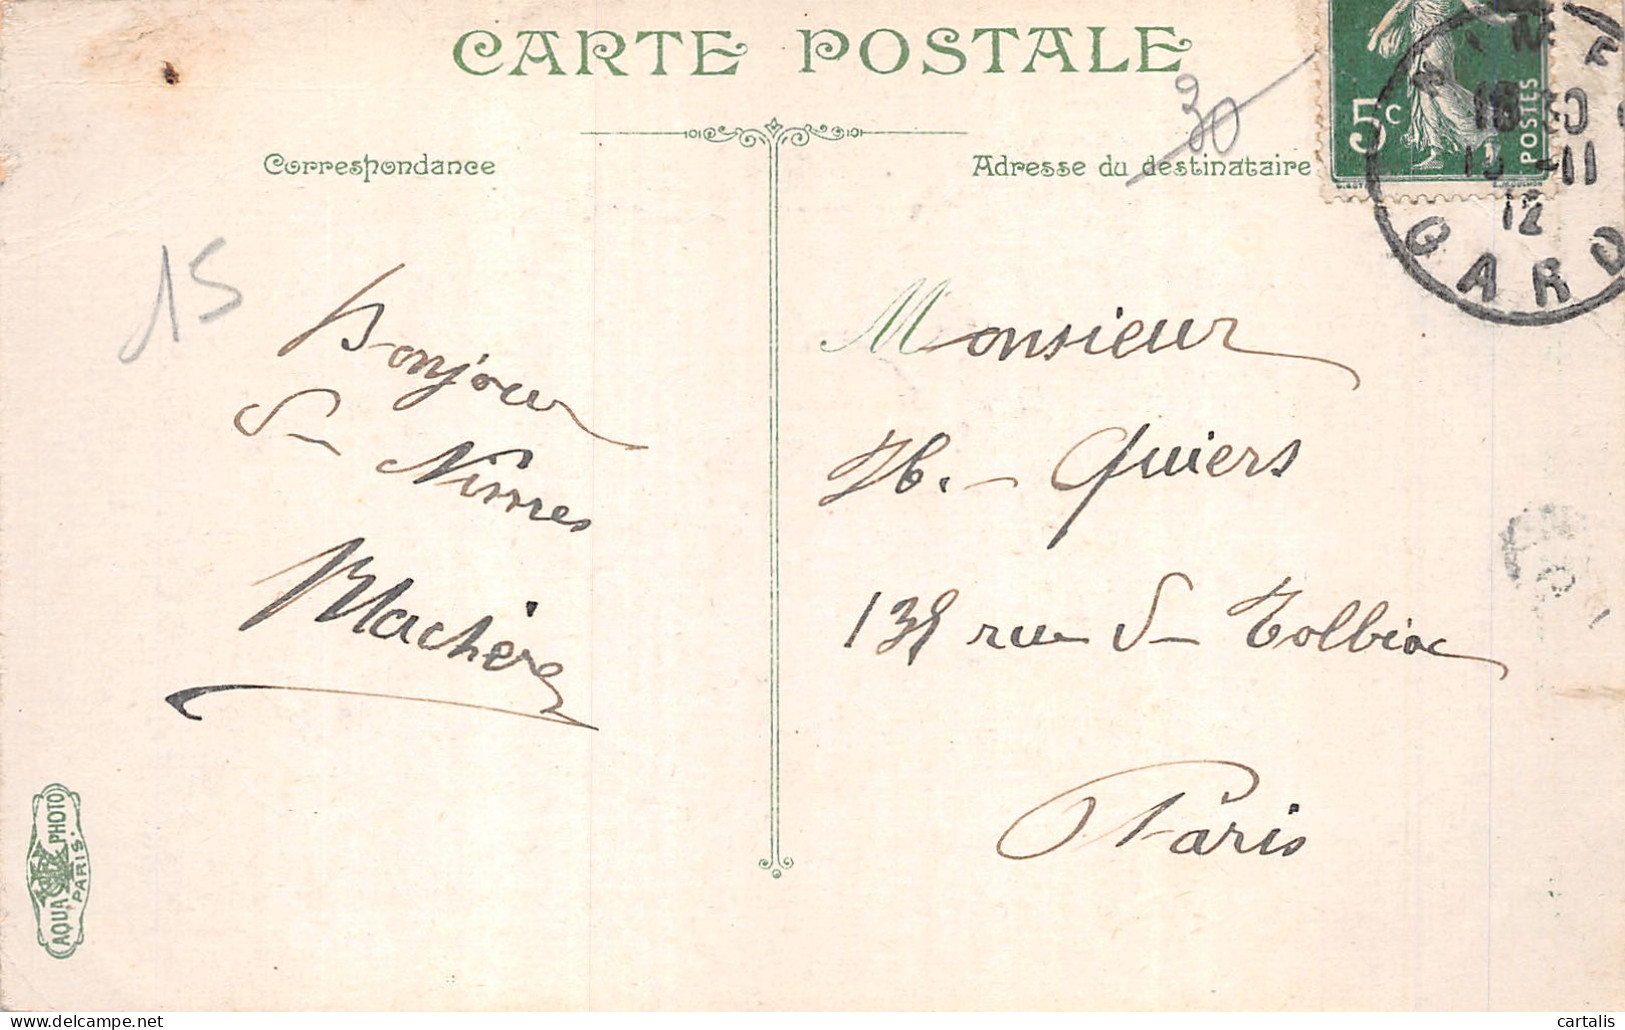 CARTE POSTALE
Correspondance
Adresse du destinataire
30
5c
POSTES
NIMES
18 30
11
12
GARD
15
Bonjour
de Nimes
Monsieur
H. - Quiers
135 rue de Tolbiac
Paris
AQUA PHOTO
PARIS.
cartalis